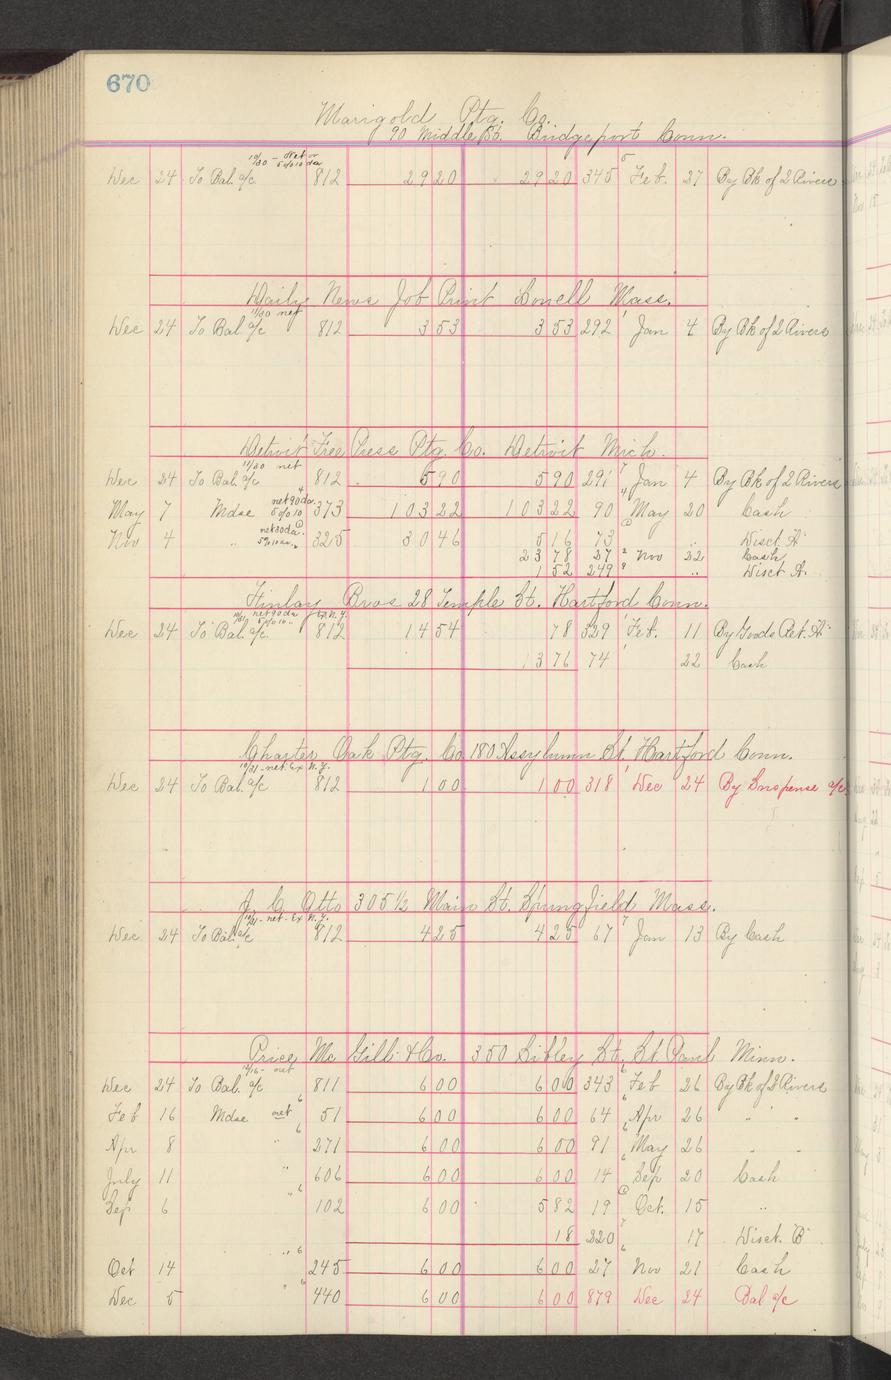 670
Marigold Ptg. Co.
90 Middle St. Bridgeport Conn.
10/30 - Net or
5 % 10 da
Dec 24 To Bal. a/c 812 29 20 29 20 345 5 Feb. 27 By Bk of 2 Rivers
Daily News Job Print Lowell Mass.
11/30 net
Dec 24 To Bal a/c 812 3 53 3 53 292 1 Jan 4 By Bk of 2 Rivers
Detroit Free Press Ptg. Co. Detroit Mich.
11/30 net
Dec 24 To Bal. a/c 812 5 90 5 90 291 7 Jan 4 By Bk of 2 Rivers
May 7 Mdse net 90 da. 5 % 10 4 373 103 22 103 22 90 4 May 20 Cash
Nov 4 " net 30 da. 5% 10 325 30 46 5 16 73 " Disct. A
23 78 27 2 Nov 22 Cash
1 52 249 9 " Disct A.
Finlay Bros 28 Temple St. Hartford Conn.
net 90 da Ex N.Y.
5 % 10 "
Dec 24 To Bal a/c. 812 14 54 78 329 1 Feb. 11 By Goods Ret. A
13 76 74 1 22 Cash
Charter Oak Ptg. Co. 180 Assylumn St. Hartford Conn.
10/31 - net. Ex N.Y.
Dec 24 To Bal. a/c 812 1 00 1 00 318 1 Dec 24 By Suspense a/c
J. C. Otto 305 1/2 Main St. Springfield Mass.
net. Ex N.Y.
Dec 24 To Bal. a/c 812 4 25 4 25 67 7 Jan 13 By Cash
Price Mc Gill & Co. 350 Sibley St. St. Paul Minn.
net
Dec 24 To Bal. a/c 811 6 00 6 00 343 6 Feb 26 By Bk of 2 Rivers
Feb 16 Mdse net 6 51 6 00 6 00 64 6 Apr 26 " "
Apr 8 " 6 271 6 00 6 00 91 6 May 26 " "
July 11 " 606 6 00 6 00 14 6 Sep 20 Cash
Sep 6 " 6 102 6 00 5 82 19 Oct. 15 "
18 220 7 17 Disct. B
Oct 14 " 6 245 6 00 6 00 27 6 Nov 21 Cash
Dec 5 " 6 440 6 00 6 00 879 Dec 24 Bal a/c